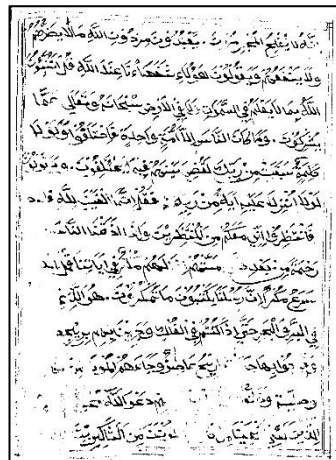 انه لا يفلح المجرمون ويعبدون من دون الله ما لا يضرهم
ولا ينفعهم ويقولون هؤلاء شفعاءنا عند الله قل اتنبئون
الله بما لا يعلم في السموات ولا في الارض سبحانه وتعالى عما
يشركون وما كان الناس الا امة واحدة فاختلفوا ولولا
كلمة سبقت من ربك لقضي بينهم فيه يختلفون ويقولون
لولا انزل عليه اية من ربه فقل انما الغيب لله
فانتظروا اني معكم من المنتظرين واذا اذقنا الناس
رحمة من بعد مستهم لهم مكر في اياتنا قل الله
اسرع مكرا ان رسلنا يكتبون ما تمكرون هو الذي
في البر والبحر حتى اذا كنتم في الفلك وجرين بهم بريح
وفرحوا بها ريح عاصف وجاءهم الموج
دعوا الله
من الشاكرين